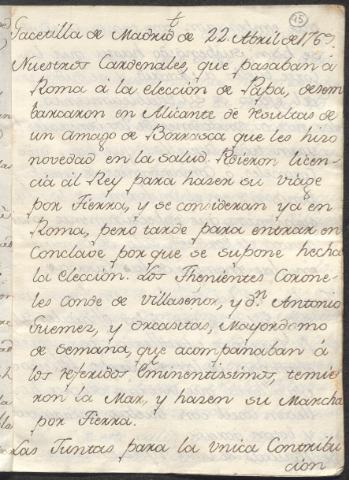 15
Gacetilla de Madrid de 22 Abril de 1769.
Nuestros Cardenales, que pasaban á
Roma á la elección de Papa, desem
barcaron en Alicante de resultas de
un amago de Borrasca que les hizo
novedad en la salud. Pidieron licen-
cia al Rey para hazer su viage
por Tierra, y se consideran yá en
Roma, pero tarde para entrar en
Conclave por que se supone hecha
la elección. Los Thenientes Corone-
les Conde de Villasenor, y Dn. Antonio
Guemez, y Orcasitas, Mayordomo
de semana, que acompañaban á
los referidos Eminentissimos, temie-
ron la Mar, y hazen su Marcha
por Tierra.
Las Juntas para la Vnica Contribu
cion